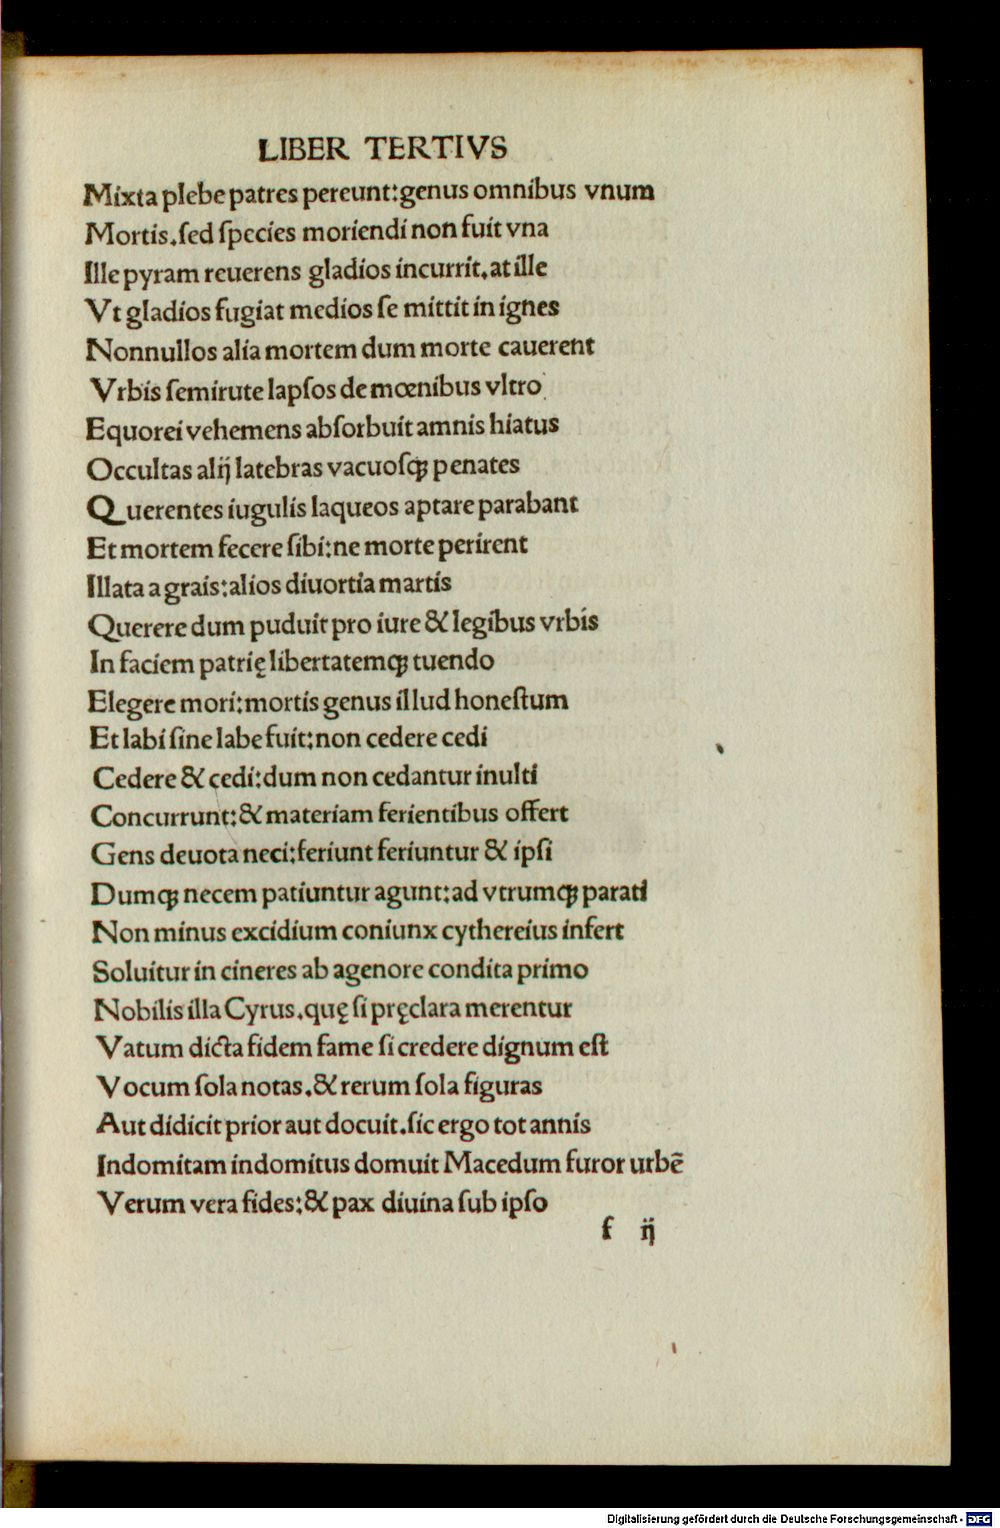 LIBER TERTIVS
Mixta plebe patres pereunt:genus omnibus vnum
Mortis.ſed ſpecies moriendi non fuit vna
Ille pyram reuerens gladios incurrit.at ille
Vt gladios fugiat medios ſe mittit in ignes
Nonnullos alia mortem dum morte cauerent
Vrbis ſemirute lapſos de mœnibus vltro
Equorei vehemens abſorbuit amnis hiatus
Occultas alij latebras vacuoſqꝫ penates
Querentes iugulis laqueos aptare parabant
Et mortem fecere ſibi:ne morte perirent
Illata a grais:alios diuortia martis
Querere dum puduit pro iure & legibus vrbis
In faciem patrię libertatemqꝫ tuendo
Elegere mori:mortis genus illud honeſtum
Et labi ſine labe fuit:non cedere cedi
Cedere & cedi:dum non cedantur inulti
Concurrunt:& materiam ferientibus offert
Gens deuota neci:feriunt feriuntur & ipſi
Dumqꝫ necem patiuntur agunt:ad vtrumqꝫ parati
Non minus excidium coniunx cythereius infert
Soluitur in cineres ab agenore condita primo
Nobilis illa Cyrus.quę ſi pręclara merentur
Vatum dicta fidem fame ſi credere dignum eſt
Vocum ſola notas.& rerum ſola figuras
Aut didicit prior aut docuit.ſic ergo tot annis
Indomitam indomitus domuit Macedum furor urbē
Verum vera fides:& pax diuina ſub ipſo
f ij
Digitalisierung gefördert durch die Deutsche Forschungsgemeinschaft - DFG